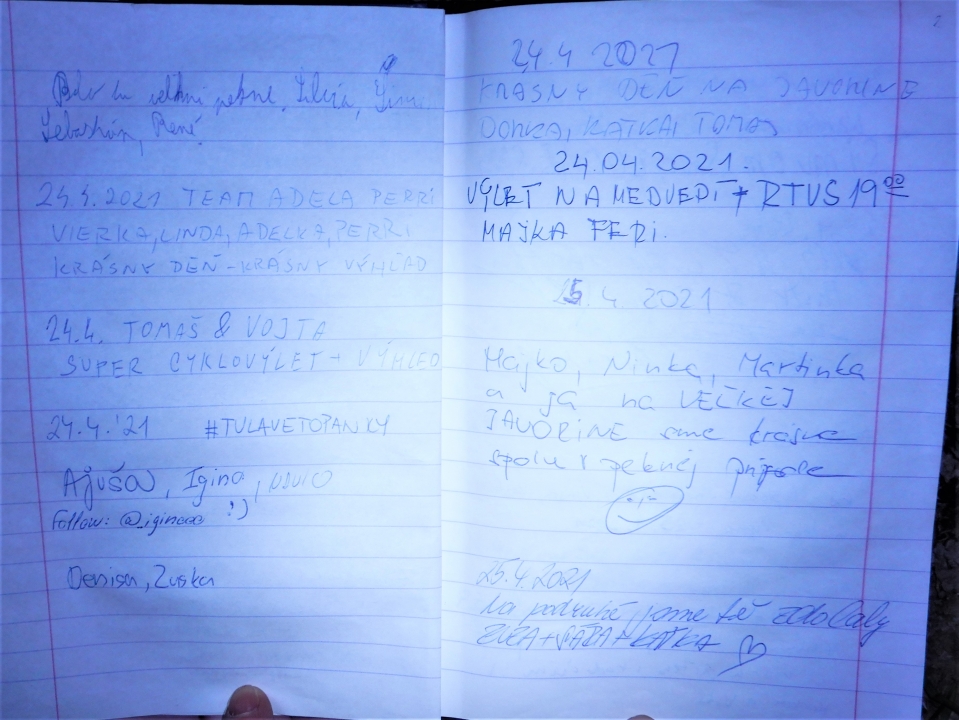 Bolo tu veľmi pekne. Silvia,
Sebastián, René
24.4.2021 TEAM ADELA PERRI
VIERKA, LINDA, ADELKA, PERRI
KRÁSNY DEŇ - KRÁSNY VÝHĽAD
24.4. TOMAŠ & VOJTA
SUPER CYKLOVÝLET + VÝHLED
24.4.'21 #TULAVETOPANKY
Ajuša, Igina,
Follow: :)
Denisa, Zuska
24.4 2021
KRASNY DEŇ NA JAVORINE
KATKA, TOMAS
24.04.2021.
VÝLET NA MEDVEDÍ + RTVS 19 00
MAJKA FERI.
25.4 2021
Majko, Ninka, Martinka
a ja na VEĽKEJ
JAVORINE sme krásne
spolu v peknej prírode
25.4.2021
Na podruhé jsme tě zdolaly
KATKA